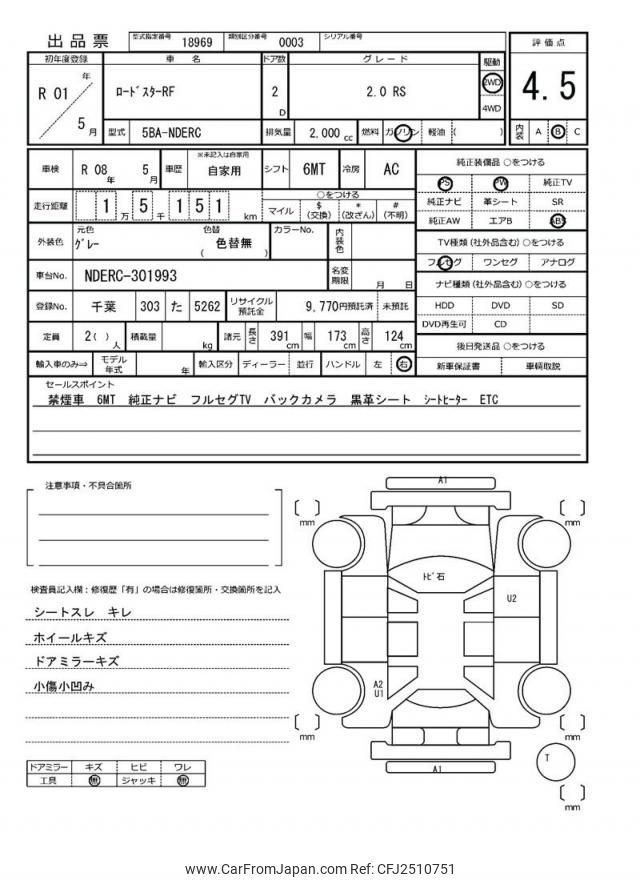 出品票 型式指定番号 18969 類別区分番号 0003 シリアル番号
初年度登録 車名 ドア数 グレード 駆動 評価点
R 01 年 5 月 ﾛｰﾄﾞｽﾀｰRF 2 D 2.0 RS 2WD 4WD 4.5
型式 5BA-NDERC 排気量 2,000 cc 燃料 ガソリン 軽油 ( ) 内装 A B C
車検 R 08 年 5 月 車歴 ※未記入は自家用 自家用 シフト 6MT 冷房 AC
走行距離 1 万 5 千 1 5 1 km ○をつける マイル $ (交換) * (改ざん) # (不明)
外装色 元色 ｸﾞﾚｰ 色替 色替無 ( ) カラーNo. 内装色
車台No. NDERC-301993 名変期限 月 日
登録No. 千葉 303 た 5262 リサイクル預託金 9,770円預託済 未預託
定員 2( ) 人 積載量 kg 諸元 長さ 391 cm 幅 173 cm 高さ 124 cm
輸入車のみ⇒ モデル年式 年 輸入区分 ディーラー 並行 ハンドル 左 右
純正装備品 ○をつける
PS PW 純正TV
純正ナビ 革シート SR
純正AW エアB ABS
TV種類 (社外品含む) ○をつける
フルセグ ワンセグ アナログ
ナビ種類 (社外品含む) ○をつける
HDD DVD SD
DVD再生可 CD
後日発送品 ○をつける
新車保証書 車輌取説
セールスポイント
禁煙車 6MT 純正ナビ フルセグTV バックカメラ 黒革シート ｼｰﾄﾋｰﾀｰ ETC
注意事項・不具合箇所
検査員記入欄：修復歴「有」の場合は修復箇所・交換箇所を記入
シートスレ キレ
ホイールキズ
ドアミラーキズ
小傷小凹み
ドアミラー キズ ヒビ ワレ
工具 無 ジャッキ 無
A1
mm
mm
ﾄﾋﾞ石
U2
A2
U1
mm
mm
A1
T
mm
www.CarFromJapan.com Ref: CFJ2510751